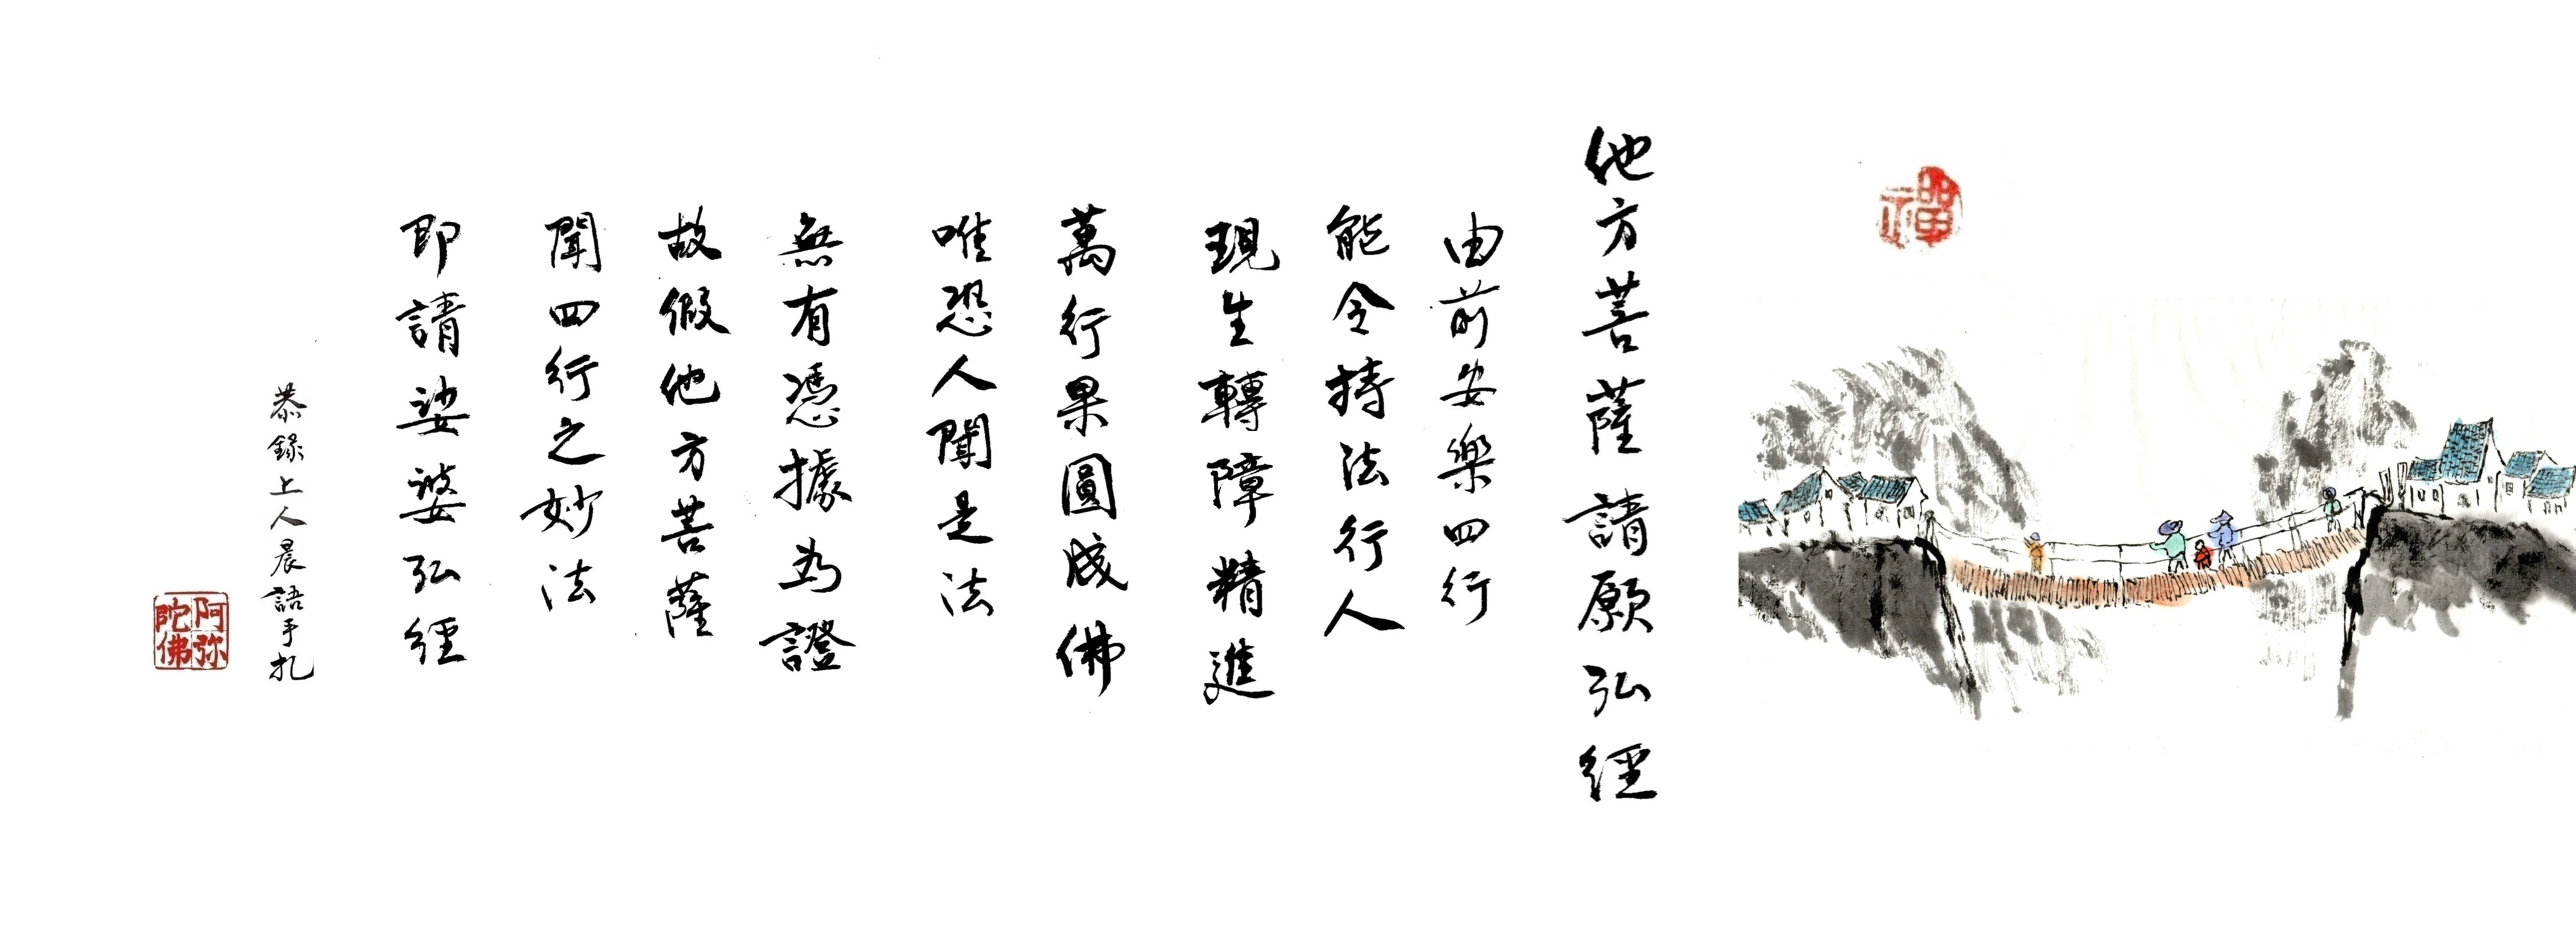 禪
他方菩薩請願弘經
由前安樂四行
能令持法行人
現生轉障精進
萬行果圓成佛
唯恐人聞是法
無有憑據為證
故假他方菩薩
聞四行之妙法
即請娑婆弘經
恭錄上人晨語手札
阿弥陀佛